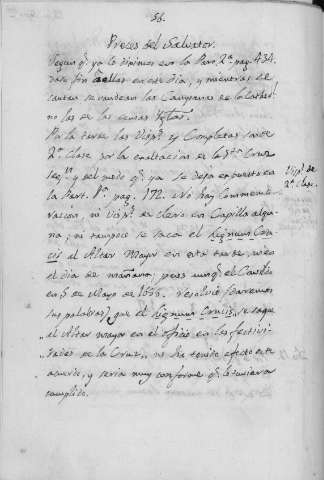 56.
Preces del Salvator.
Segun q.e ya lo digimos en la Part. 2.ª pag. 434.
dase fin à ellas en este dia, y mientras se
cantan se vandean las Campanas de la Cathed.l
no las de las demas Yglas.
Por la tarde las Visp.s y Completas son de
2.ª Clase por la exaltacion de la S.ta Cruz
seg.n y del modo q.e ya se dejo expuesto en
la Part. 1.ª pag. 172. No hay Commemo-
racion, ni Visp.s de clero en Capilla algu-
na; ni tampoco se saca el Lignum Cru-
cis al Altar Mayor en esta tarde, ni en
el dia de mañana, pues aunq.e el Cavildo
en 5 de Mayo de 1655. resolviò (daremos
sus palabras) que el Lignum Crucis, se saque
al Altar mayor en el oficio en las festivi-
dades de la Cruz, no ha tenido efecto este
acuerdo, y seria muy conforme q.e lo tuviera
cumplido.
Visp.s de
2.ª clase.